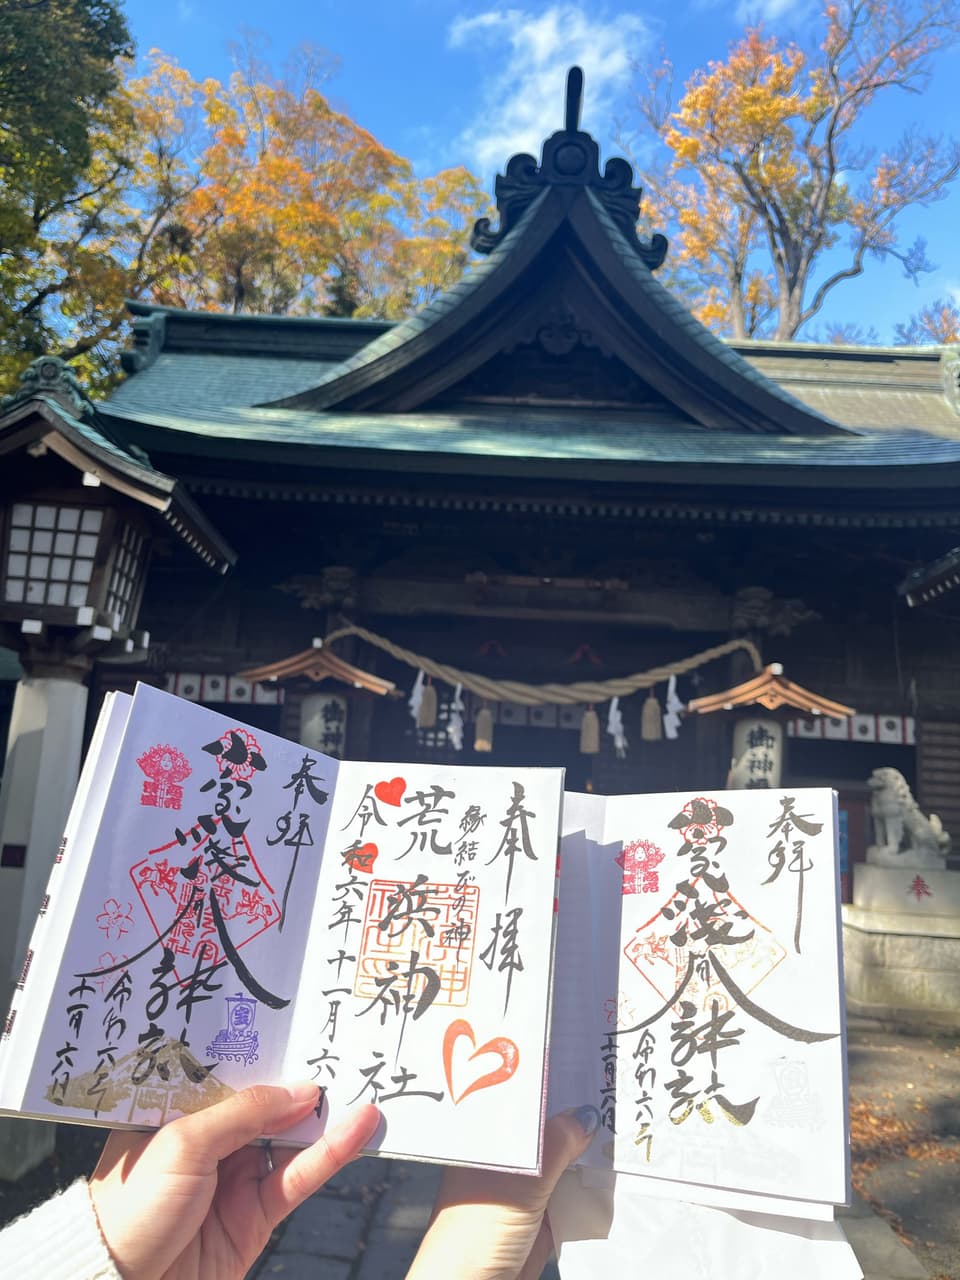 奉拝
小室浅間神社
令和六年
十一月六日
奉拝
縁結びの神
荒浜神社
令和六年十一月六日
奉拝
小室浅間神社
令和六年
十一月六日
宝
御神
御神
奉